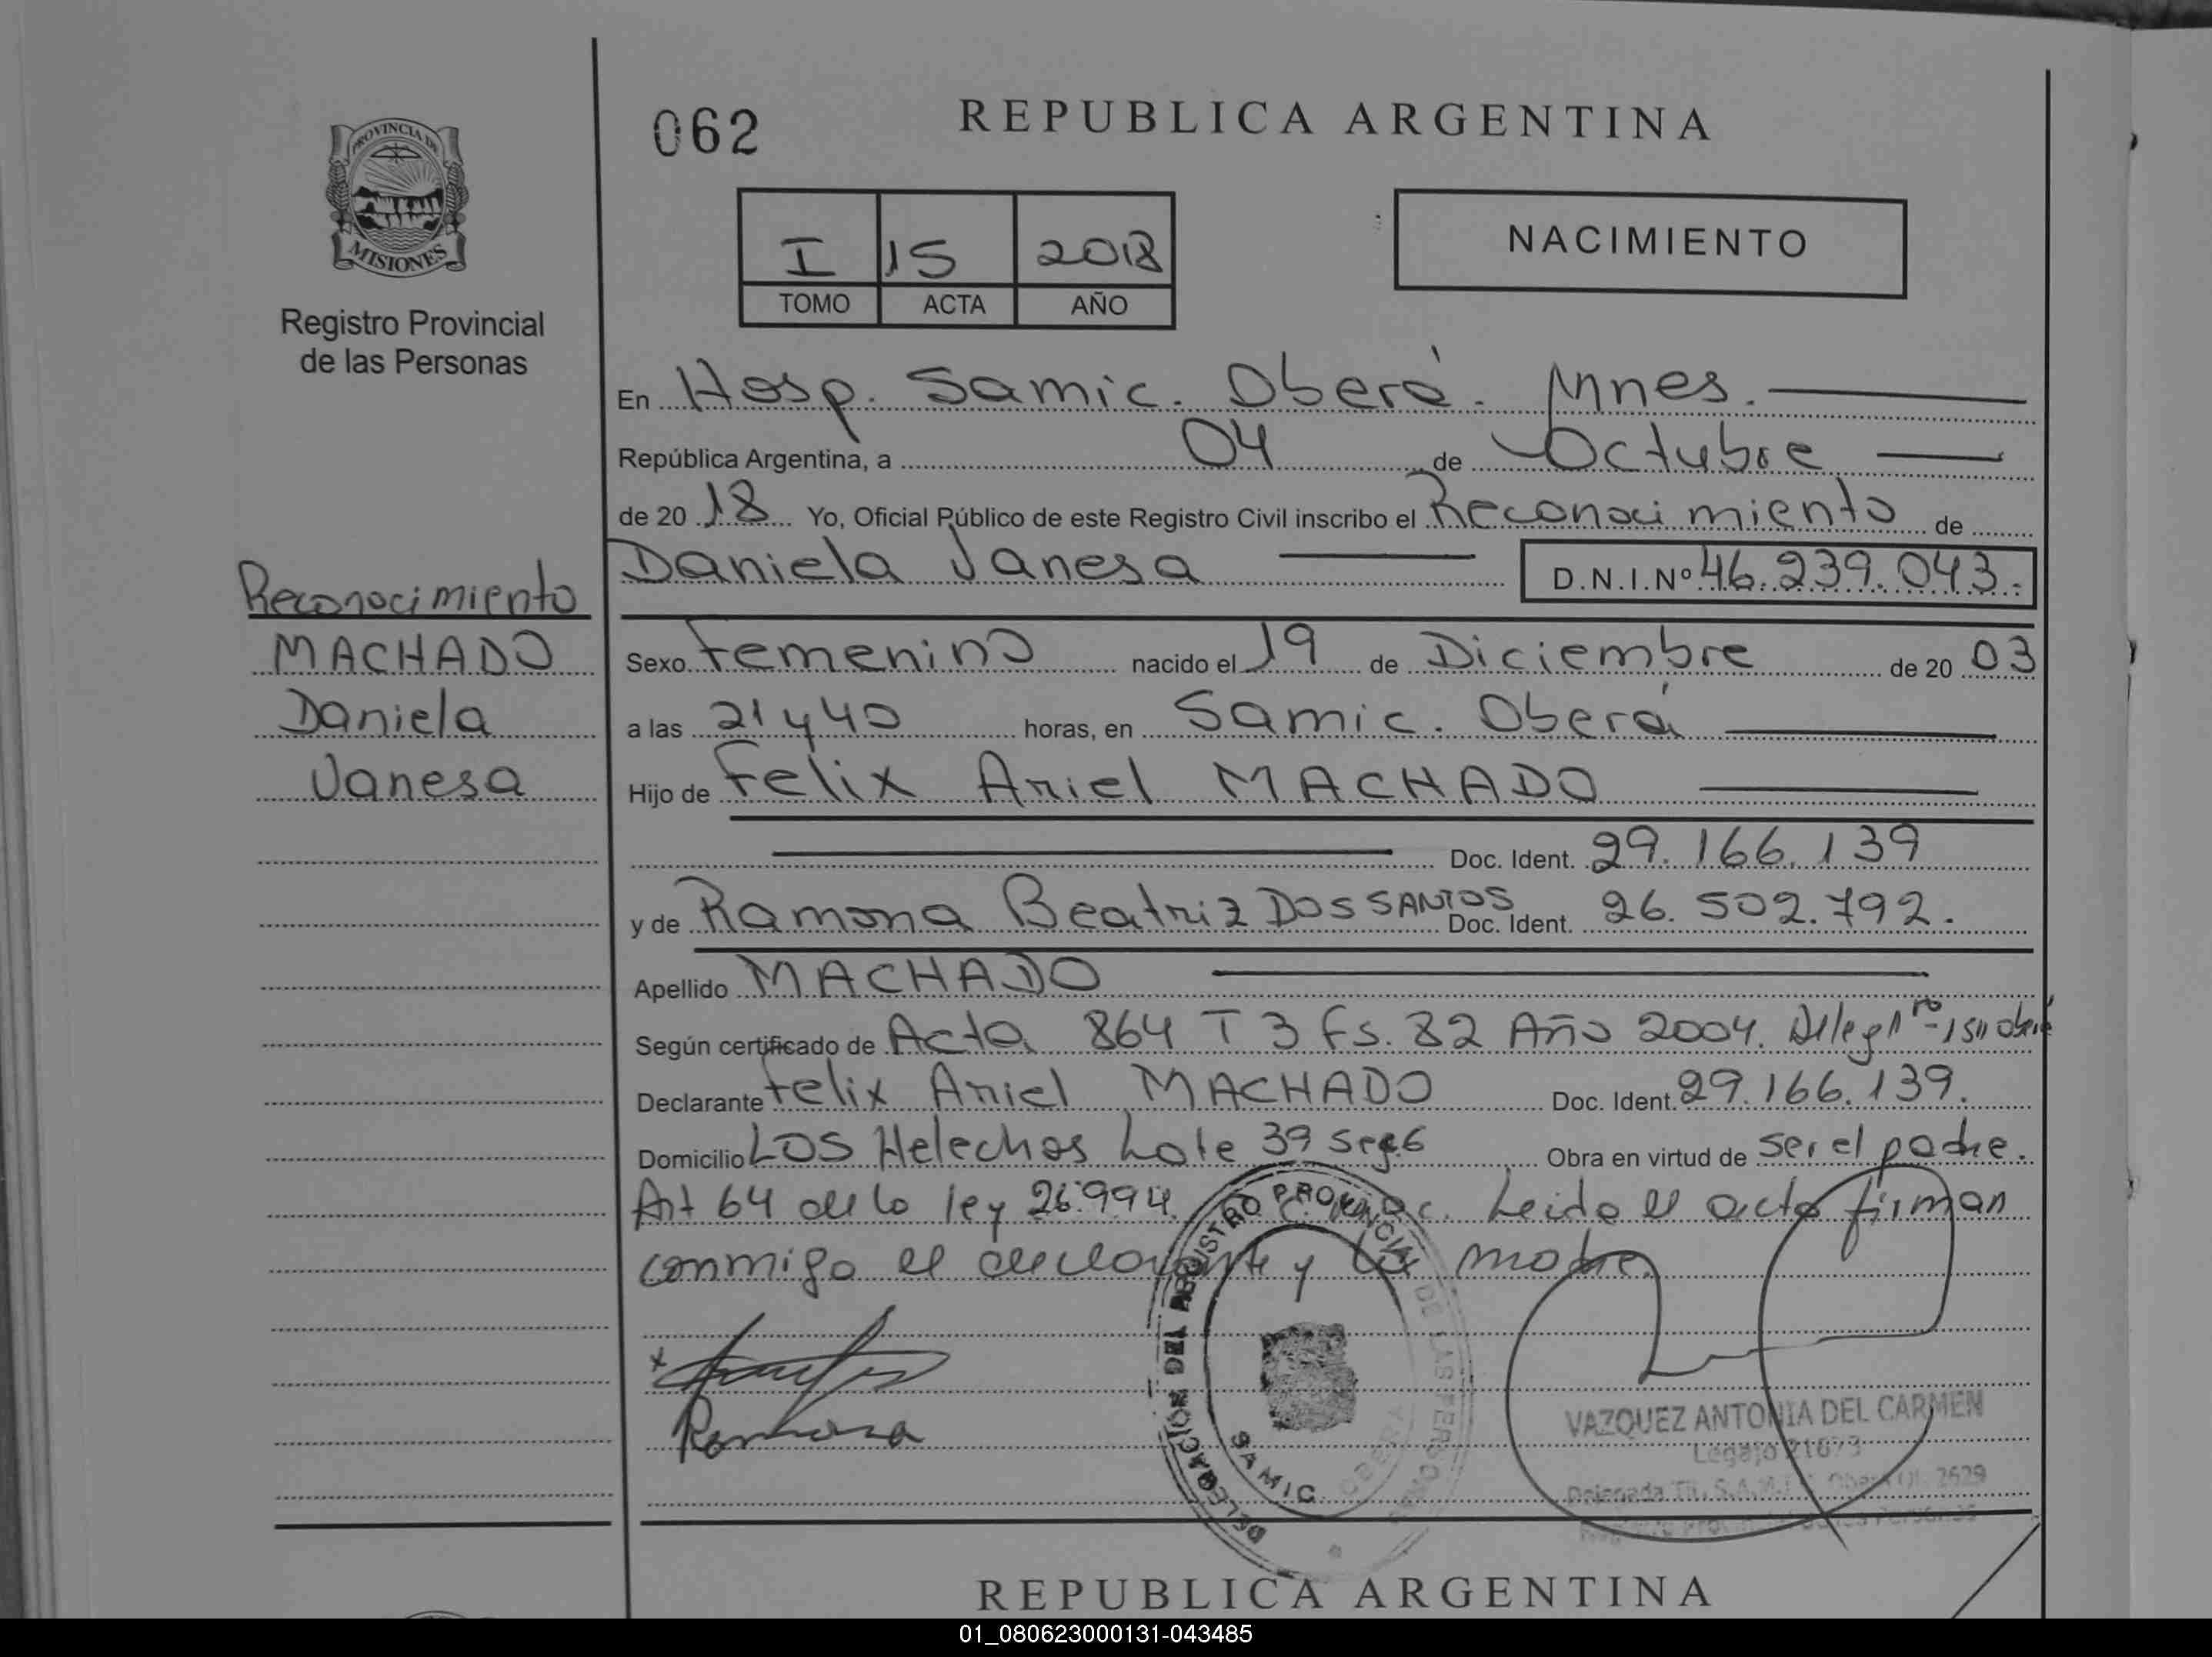 062
REPUBLICA ARGENTINA
PROVINCIA DE
MISIONES
Registro Provincial
de las Personas
I 15 2018
TOMO ACTA AÑO
NACIMIENTO
En Hosp. Samic. Oberá. Mnes.
República Argentina, a 04 de Octubre
de 20 18 Yo, Oficial Público de este Registro Civil inscribo el Reconocimiento de
Daniela Vanesa D.N.I.Nº 46.239.043.
Reconocimiento
MACHADO
Daniela
Vanesa
Sexo Femenino nacido el 19 de Diciembre de 20 03
a las 21 y 40 horas, en Samic. Oberá
Hijo de Felix Ariel MACHADO
Doc. Ident. 29.166.139
y de Ramona Beatriz DOS SANTOS Doc. Ident. 26.502.792.
Apellido MACHADO
Según certificado de Acta 864 T 3 Fs. 82 Año 2004.
Declarante Felix Ariel MACHADO Doc. Ident. 29.166.139.
Domicilio LOS Helechos Lote 39 Obra en virtud de ser el padre.
Art 64 de la ley 26.994. Leida el acta firman
conmigo el declarante y la madre
Ramona
DELEGACION DEL REGISTRO PROVINCIAL DE LAS PERSONAS
SAMIC OBERA
VAZQUEZ ANTONIA DEL CARMEN
Legajo
REPUBLICA ARGENTINA
01_080623000131-043485